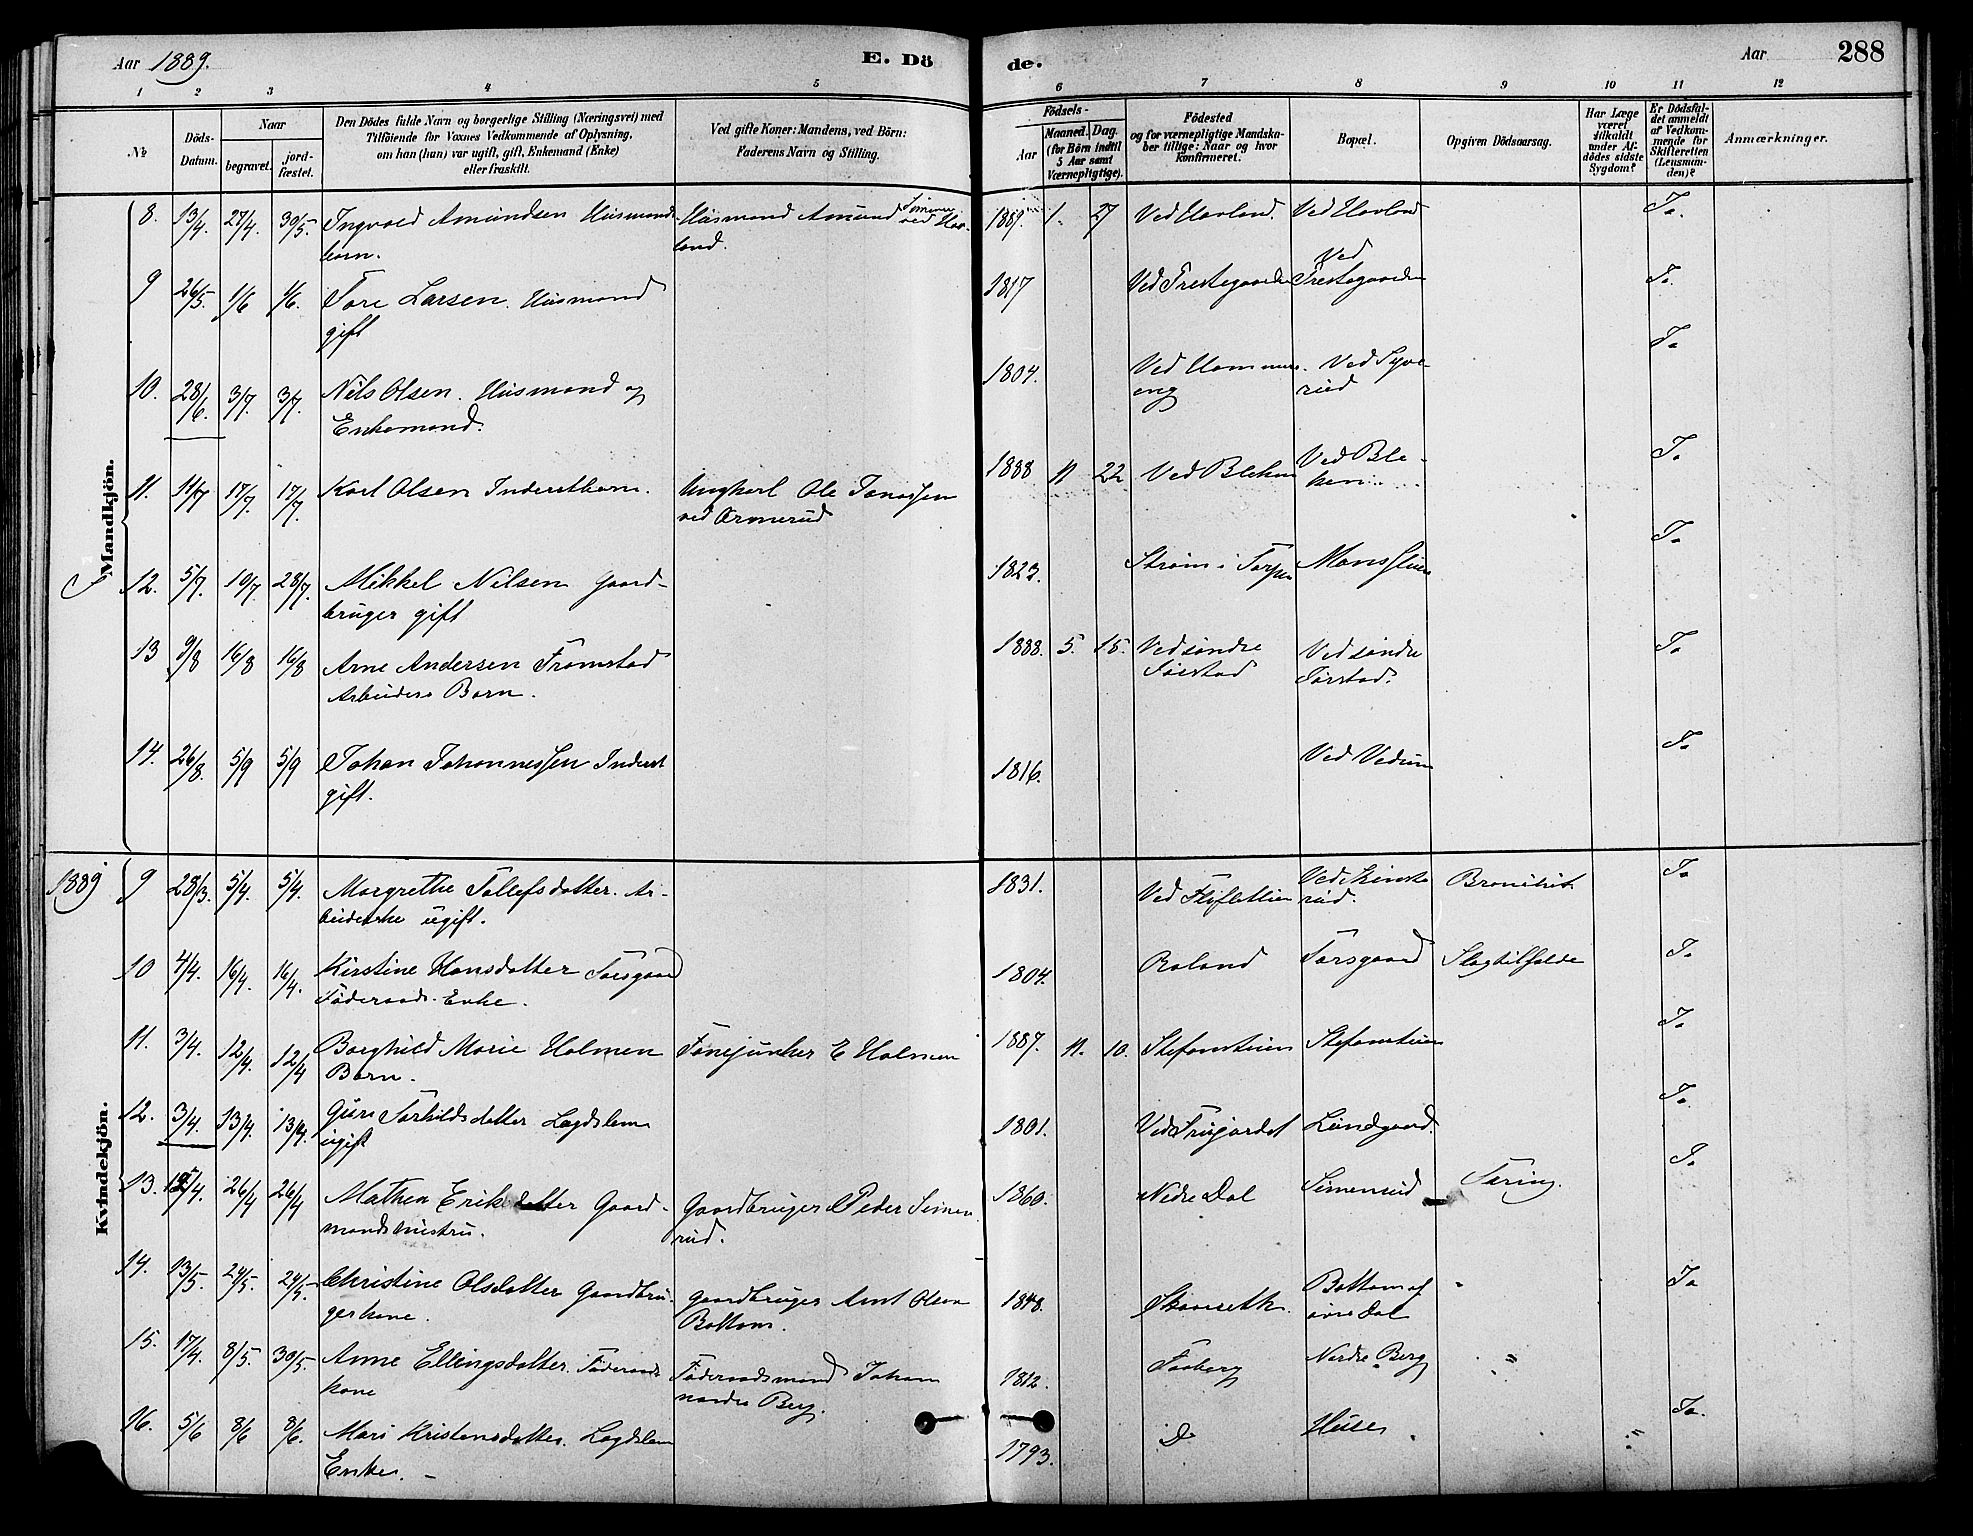 Aar 1889.
E. Dö
de.
Aar
288
1 2 3 4 5 6 7 8 9 10 11 12
№
Döds-Datum.
Naar
begravet.
jord-fæstet.
Den Dödes fulde Navn og borgerlige Stilling (Næringsvei) med
Tilföiende for Voxnes Vedkommende af Oplysning,
om han (hun) var ugift, gift, Enkemand (Enke)
eller fraskilt.
Ved gifte Koner: Mandens, ved Börn:
Faderens Navn og Stilling.
Födsels-
Aar
Maaned. Dag.
(for Börn indtil
5 Aar samt
Værnepligtige).
Födested
og for værnepligtige Mandska-
ber tillige: Naar og hvor
konfirmeret.
Bopæl.
Opgiven Dödsaarsag.
Har Læge
været
tilkaldt
under Af-
dödes sidste
Sygdom?
Er Dödsfal-
det anmeldt
af Vedkom-
mende for
Skifteretten
(Lensman-
den)?
Anmærkninger.
Mandkjön.
8. 13/4. 27/4. 30/5. Ingvald Amundsen Husmands Husmand Amund Simensen ved Hav- 1889. 1. 27 Ved Havland. Ved Havland Ja.
barn. land.
9 26/5. 1/6 1/6. Tore Larsen. Husmand 1817 Ved Prestegaarden Ved Prestegaarden Ja.
gift
10. 28/6. 3/7. 3/7. Nils Olsen. Husmand og 1804. Ved Hammers- Ved Syve- Ja
Enkemand. eng rud
11. 11/7 17/7. 17/7. Karl Olsen Inderstbarn. Ungkarl Ole Jonassen 1888 11 22 Ved Bleken Ved Ble- Ja
ved Ormerud ken
12. 5/7. 10/7. 28/7. Mikkel Nilsen gaard- 1823. Strøm i Torpen Ja
bruger gift
13 9/8 16/8 16/8 Arne Andersen Fromstad 1888. 5. 15. Ved søndre Ved søndre Ja
Arbeiders Barn. Førstad Førstad.
14. 26/8. 5/9 5/9 Johan Johannessen Inderst 1816. Ved Vedum Ja
gift.
1889
Kvindekjön.
9 28/3. 5/4. 5/4. Margrethe Tollefsdatter. Ar- 1831. Ved Ja
beiderske ugift. rud.
10 4/4. 16/4. 16/4. Kirstine Hansdatter Torsgaard 1804. Roland Torsgaard Slagtilfælde Ja
Føderaads-Enke.
11. 3/4. 12/4. 12/4 Borghild Marie Holmen Fanejunker E Holmen 1887. 11. 10. Ja
Barn.
12. 3/4. 13/4. 13/4. Guri Torhildsdatter Lægdslem 1801. Lundgaard. Ja.
ugift
13. 12/4. 26/4 26/4 Mathea Eriksdatter Gaard- Gaardbruger Peder Simen- 1860. Nedre Dal Simenrud Tæring. Ja
mandshustru. rud.
14. 13/5. 24/5. 24/5. Christine Olsdatter Gaardbru- Gaardbruger Amt Olsen 1848. Skaaseth. Bottom af Ja
gerkone. Bottom. øvre Dal
15. 17/4. 8/5. 30/5. Anne Ellingsdatter. Føderaads- Føderaadsmand Johan 1812. Faaberg Nordre Berg
kone nordre Berg.
16. 5/6 8/6 8/6. Mari Kristensdatter. Lægdslem 1793. Do Huse Ja.
Enke.